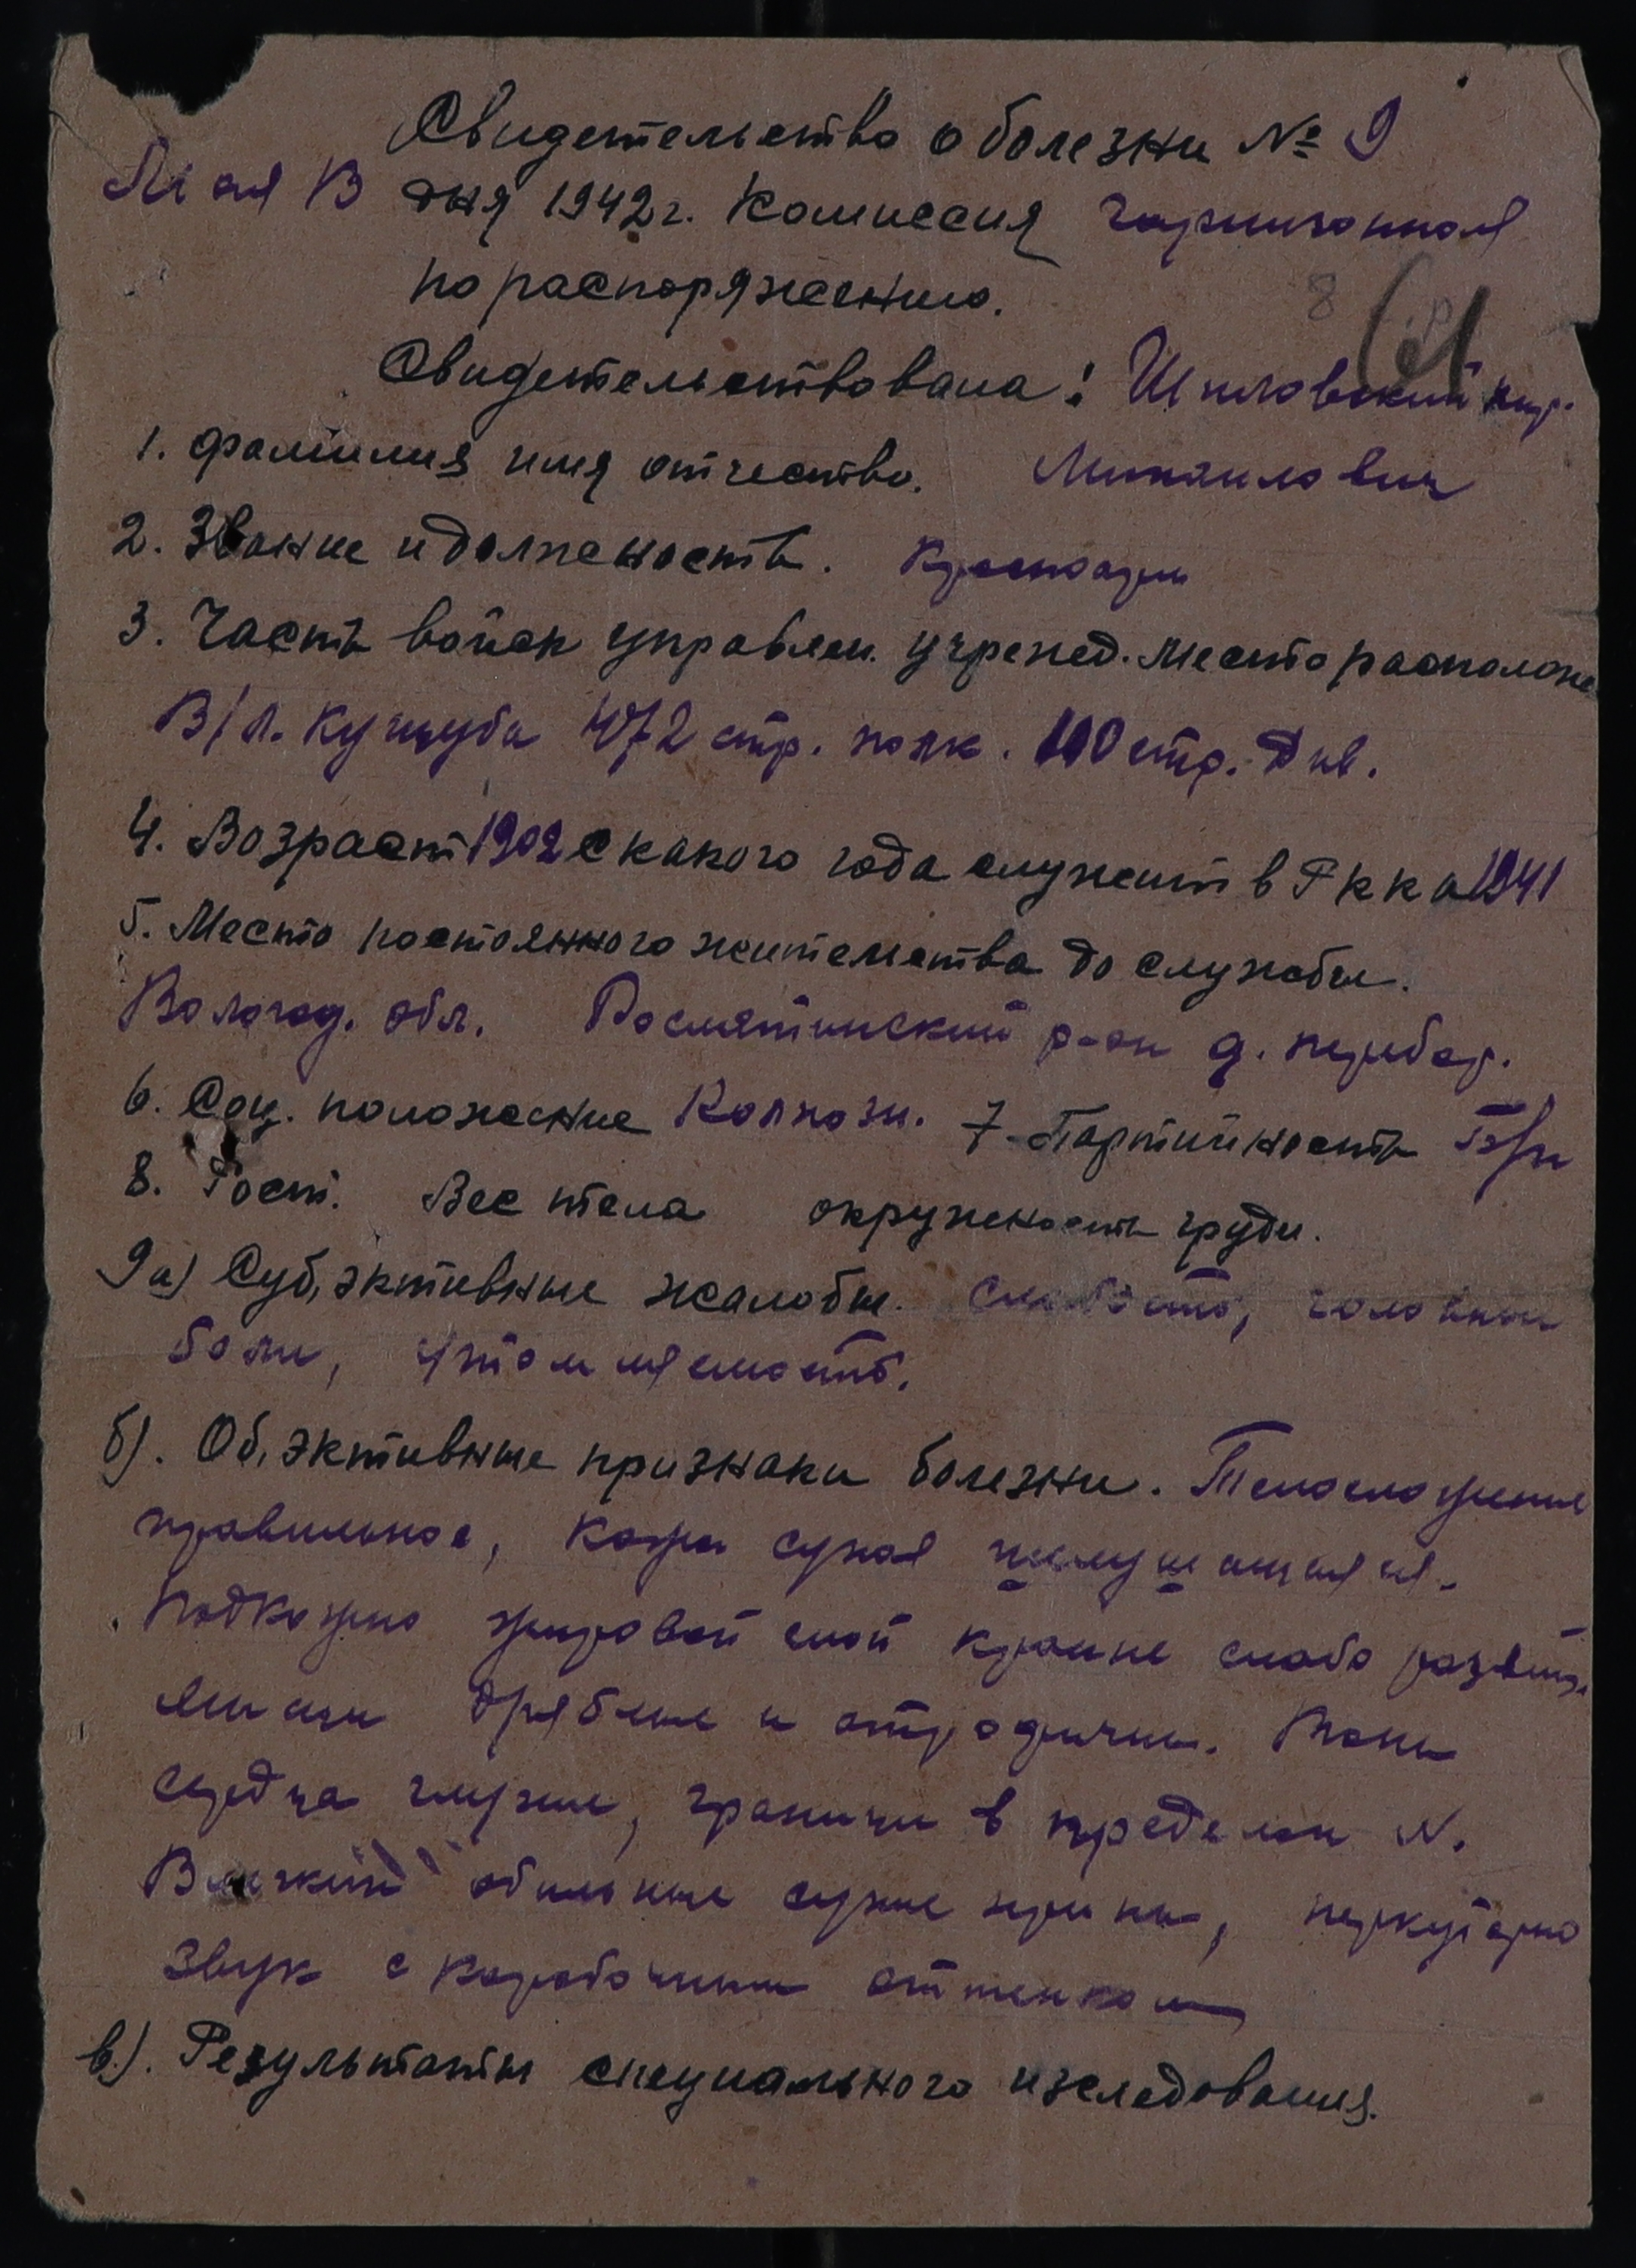 Свидетельство о болезни № 9
Мая 13 дня 1942 г. Комиссия гарнизонная
по распоряжению.
Свидетельствована: Шиловский
1. фамилия имя отчество. Михаилович
2. Звание и должность. Красноарм
3. Часть войск управлен. учрежд. место расположе
В/л. Кущуба 472 стр. полк. 100 стр. див.
4. Возраст 1902 с какого года служит в Р к к а 1941
5. Место постоянного жительства до службы.
Вологод. обл. Рослятинский р-он д.
6. Соц. положение Колхозн. 7. Партийность Б/п
8. Рост. Вес тела окружность груди.
9 а) Суб,эктивные жалобы. Слабость, головные
боли, утомляемость.
б). Об,эктивные признаки болезни. Телосложение
правильное, кожа сухая шелушащаяся.
Подкожно жировой слой крайне слабо развит,
мышцы дряблые и атрофичны. Тоны
сердца глухие, границы в пределах N.
В легких обильные сухие хрипы, перкуторно
звук с коробочным оттенком
в). Результаты специального изследования.